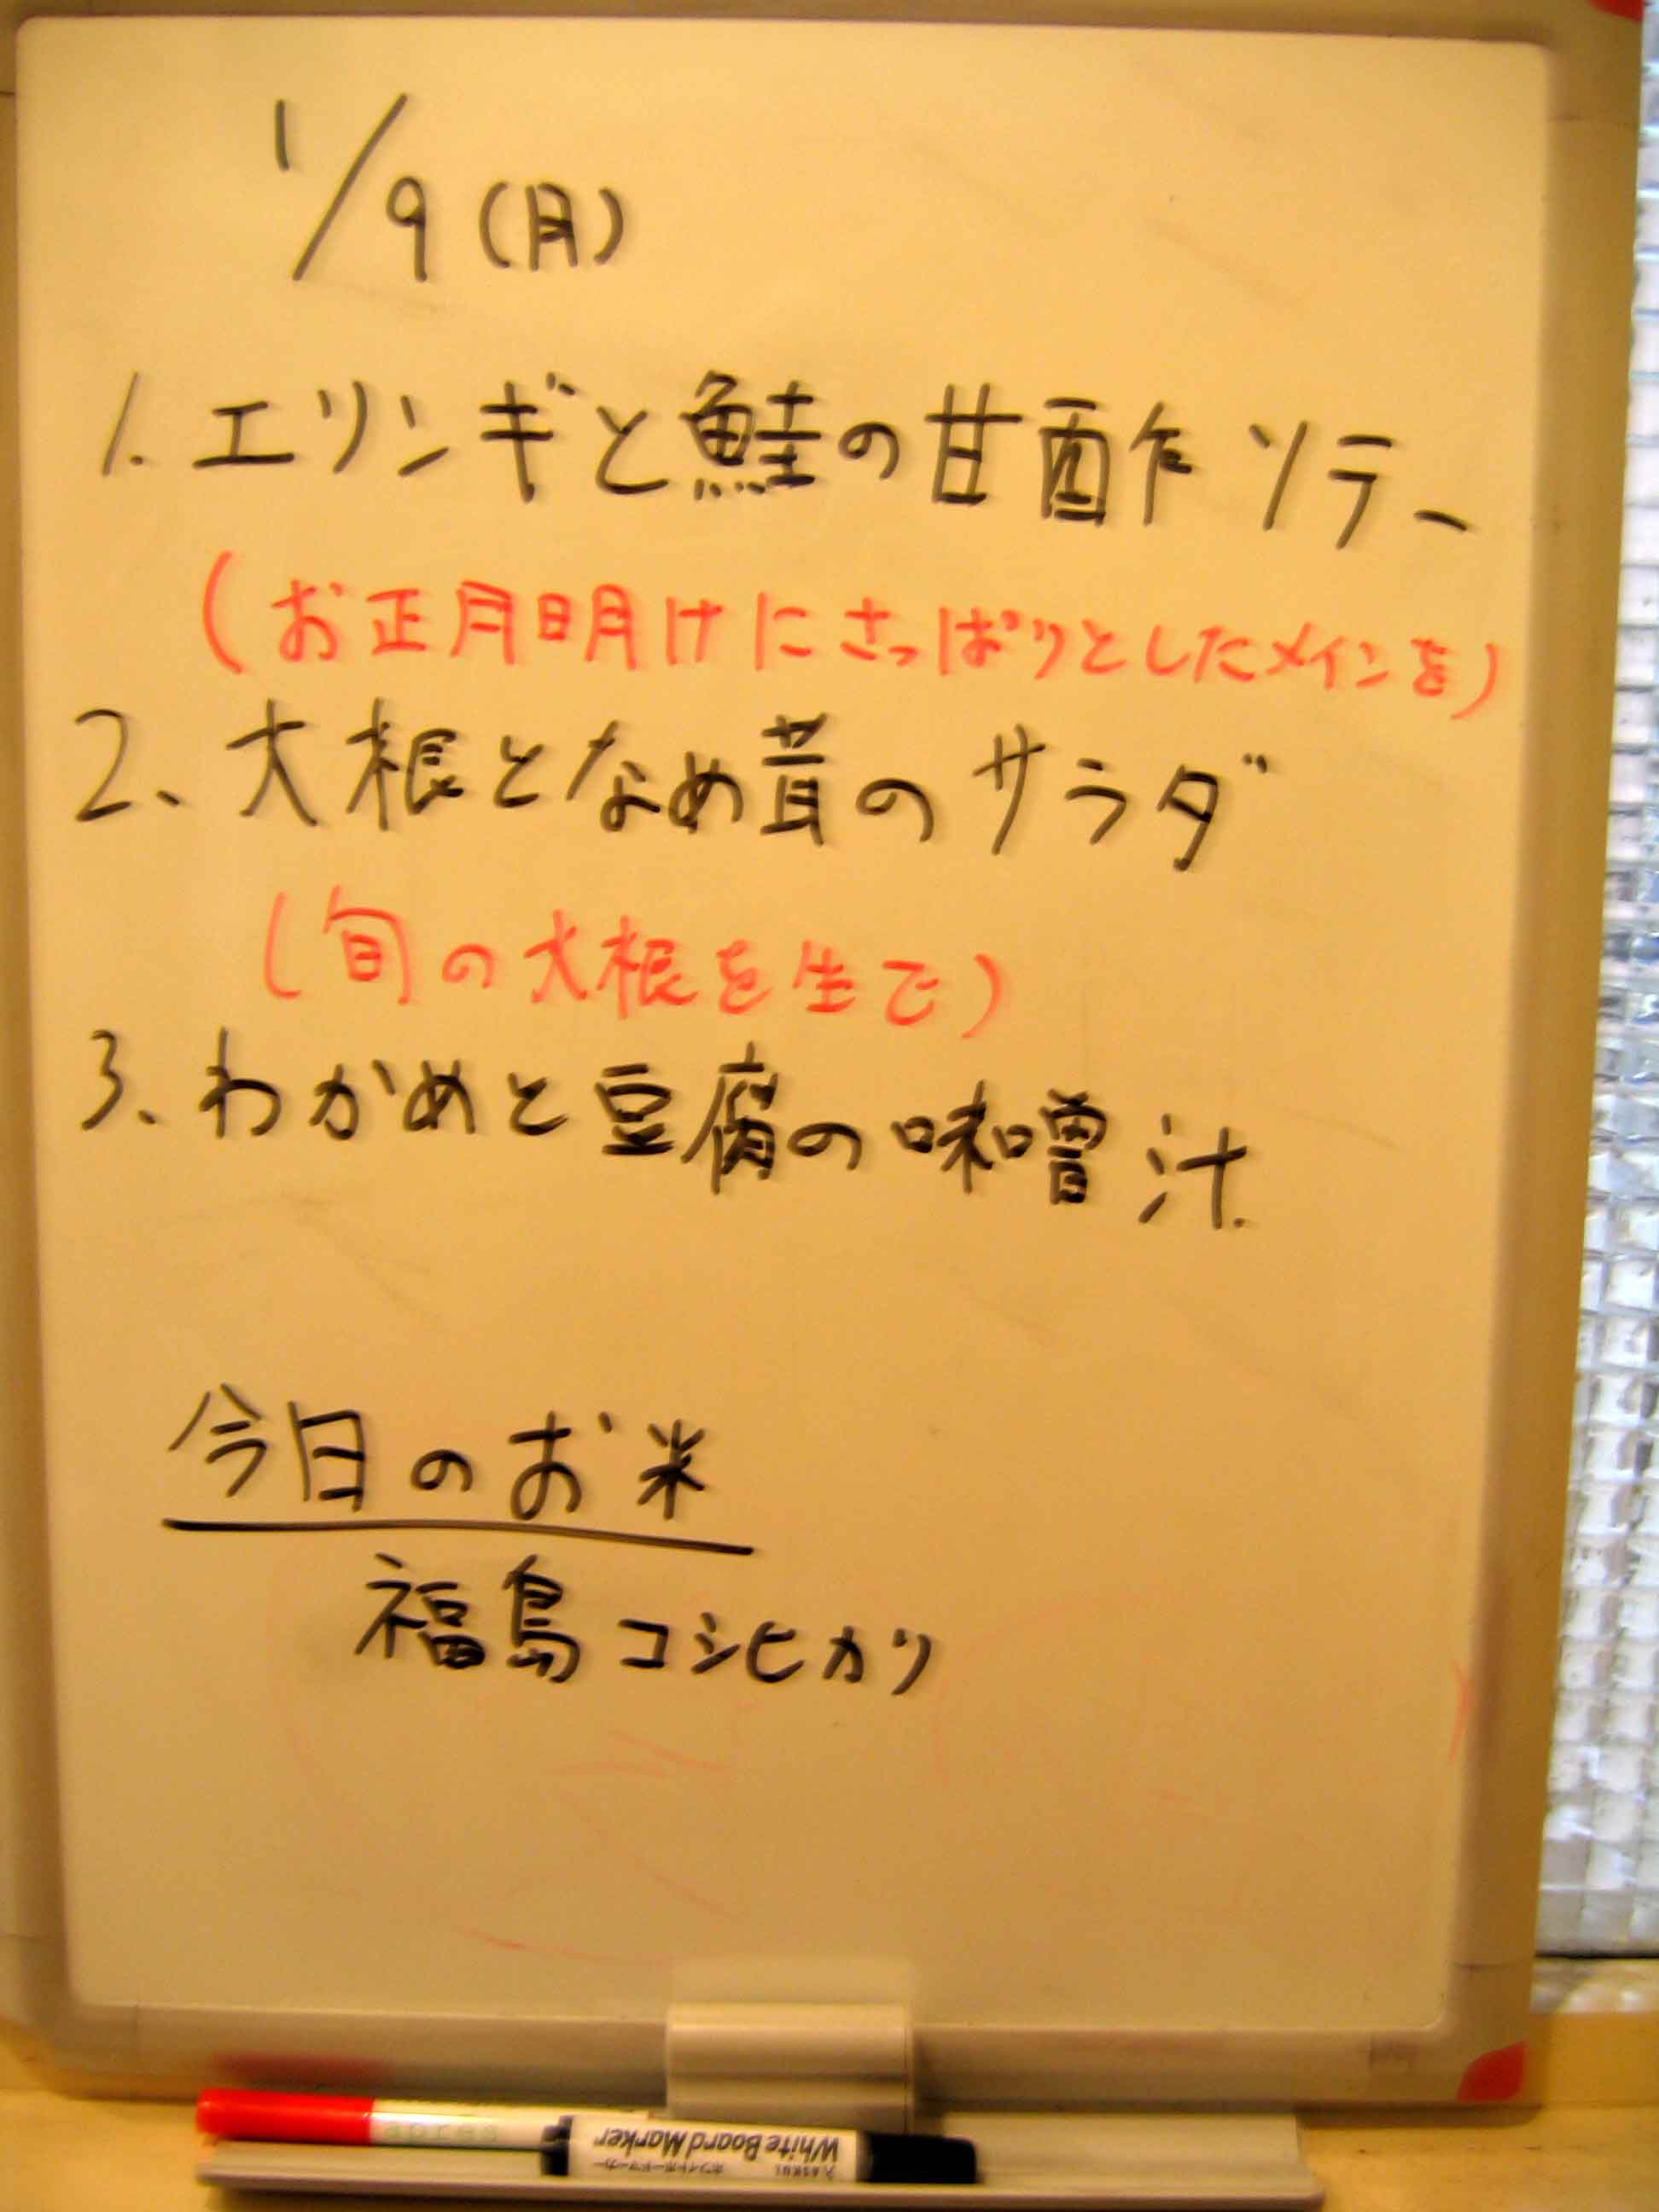 1/9(月)
1. エリンギと鮭の甘酢ソテー
(お正月明けにさっぱりとしたメインを)
2、大根となめ茸のサラダ
(旬の大根を生で)
3、わかめと豆腐の味噌汁
今日のお米
福島コシヒカリ
WhiteBoardMarker
ASKUL ホワイトボードマーカー